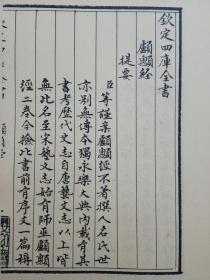 欽定四庫全書
顱顖經
提要
臣等謹案顱顖經不著撰人名氏世
亦别無傳本獨永樂大典内載有其
書考歷代史志自唐藝文志以上皆
無此名至宋藝文志始有師巫顱顖
經二卷今檢此書前有序文一篇稱